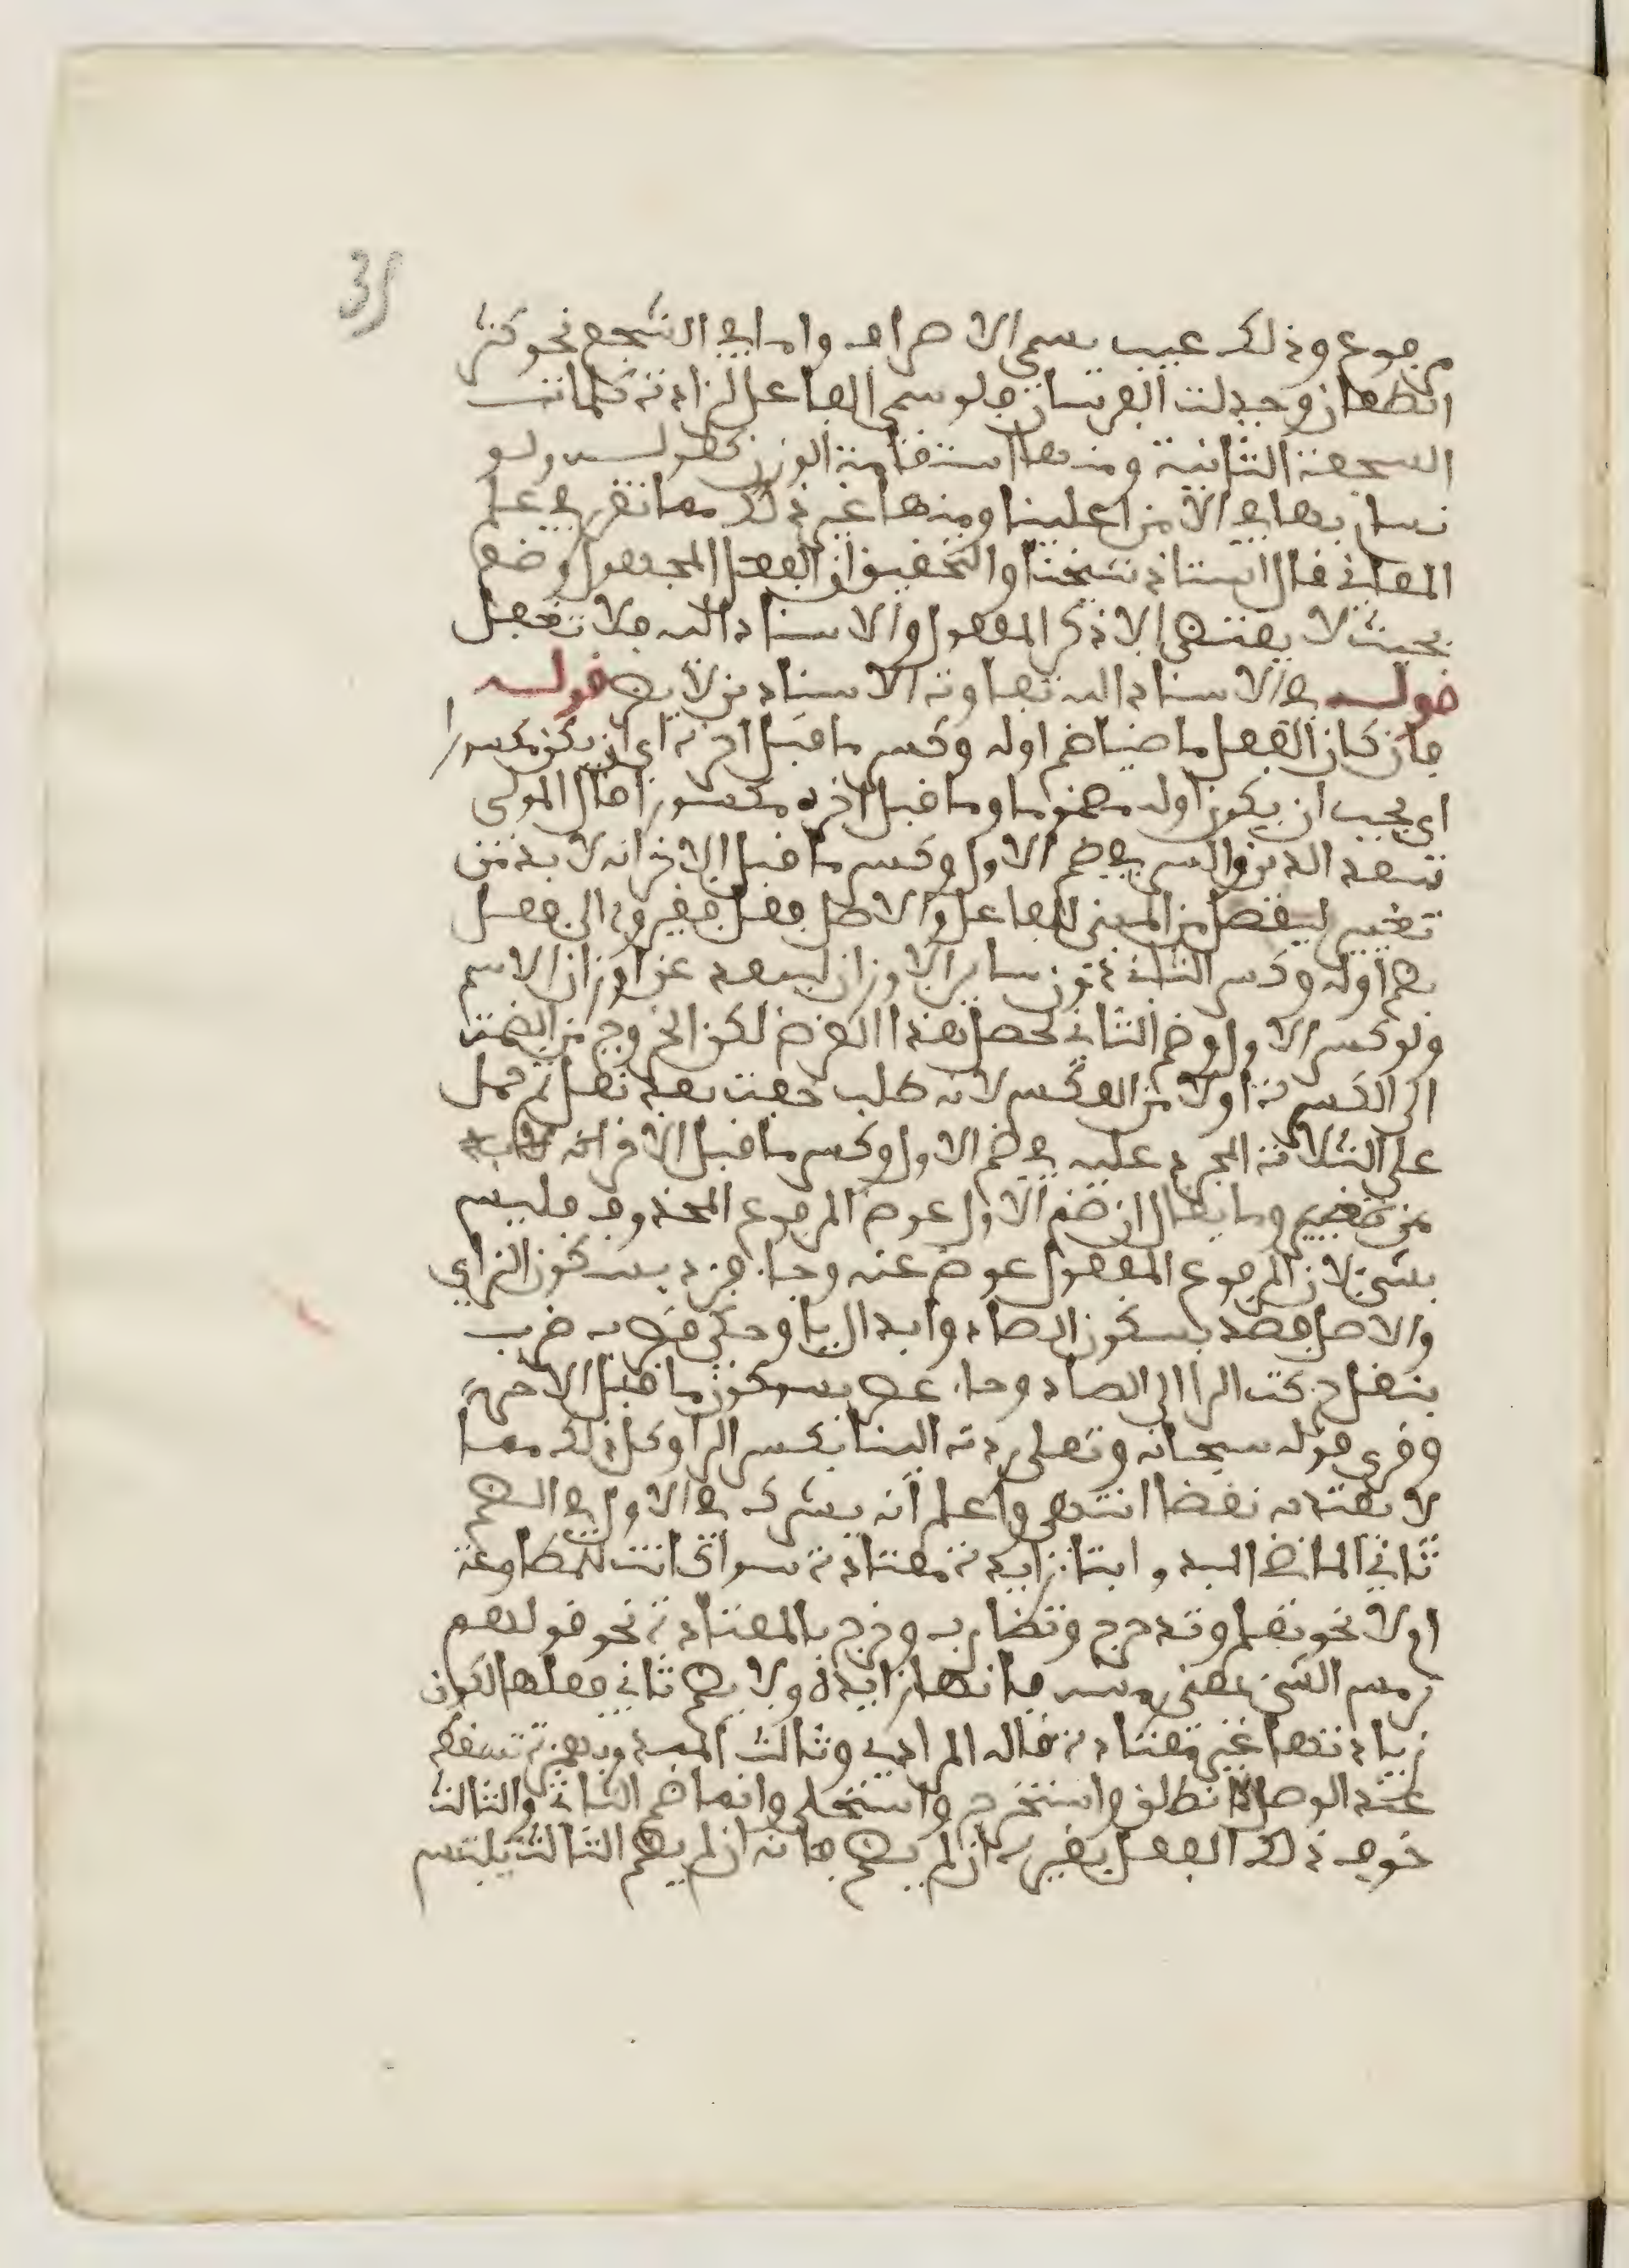 35
مرفوع وذلك عيب يسمى الاصراف واما في السجع نحو كثر
الطعان وجدلت الفرسان فلو سمى الفاعل لزادت كلمات
السجعة الثانية ومنها استقامة الوزن كقوله ولو
المعاني قال استاذ شيخنا والتحقيق ان الفعل المجهول وضع
بحيث لا يقتضي الا ذكر المفعول والاسناد اليه فلا تغفل
قوله في الاسناد اليه تفاوته الاسناد من لابه قوله
فان كان الفعل ماضيا ضم اوله وكسر ما قبل اخره اي ان يكن مكسورا
اي يجب ان يكون اوله مضموما وما قبل اخره مكسورا قال المولى
سعد الدين والسر في ضم الاول وكسر ما قبل الاخر انه لا بد من
تغيير ليفصل من المبني للفاعل والاصل فعل فغيروه الى فعل
بضم اوله وكسر الثاني دون سائر الاوزان ليبعد عن اوزان الاسم
ولو كسر الاول وضم الثاني لحصل هذا الغرض لكن الخروج من الضمة
الى الكسرة اولا من العكس لانه طلب خفة بعد ثقل ثم حمل
على الثلاثة المجرد عليه في ضم الاول وكسر ما قبل الاخر انه لابد
من تغيير وما يقال ان ضم الاول عوض المرفوع المحذوف فليس
بشئ لان المرفوع المفعول عوض عنه وجاء فزد بسكون الزاي
والاصل فصد بسكون الصاد وابدال يا وحكى قطرب ضرب
بنقل حركة الرا الى الضاد وجاء عصر بسكون ما قبل الاخر
وقرى قوله سبحانه وتعلى ردت الينا بكسر الرا وكل ذلك مما
لا يعتد به نقضا انتهى واعلم انه يشرك في الاول في الضم
ثاني الماضي المبدو ابتا زايدة معتادة سوا كانت للمطاوعة
او لا نحو تعلم وتدحرج وتضارب وخرج بالمعتادة نحو قولهم
ترمس الشئ بمعنى رمسه فانها زايدة ولا يضم ثاني فعلها لكون
زيادتها غير معتادة قاله المرادي وثالث المبدو بهمزة تسقط
عند الوصل كانطلق واستخرج واستحلي وانما ضم الثاني والثالث
خوف ذلك الفعل بغيره ان لم يضم فانه ان لم يضم الثالث يلتبس